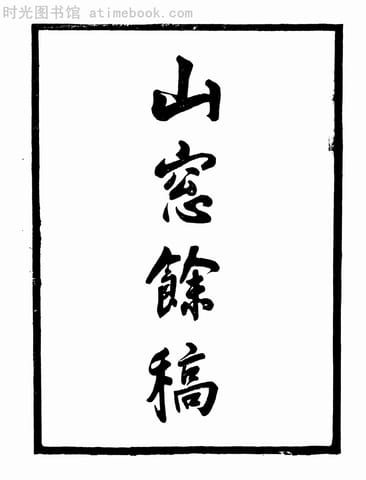 时光图书馆 atimebook.com
山窓餘稿